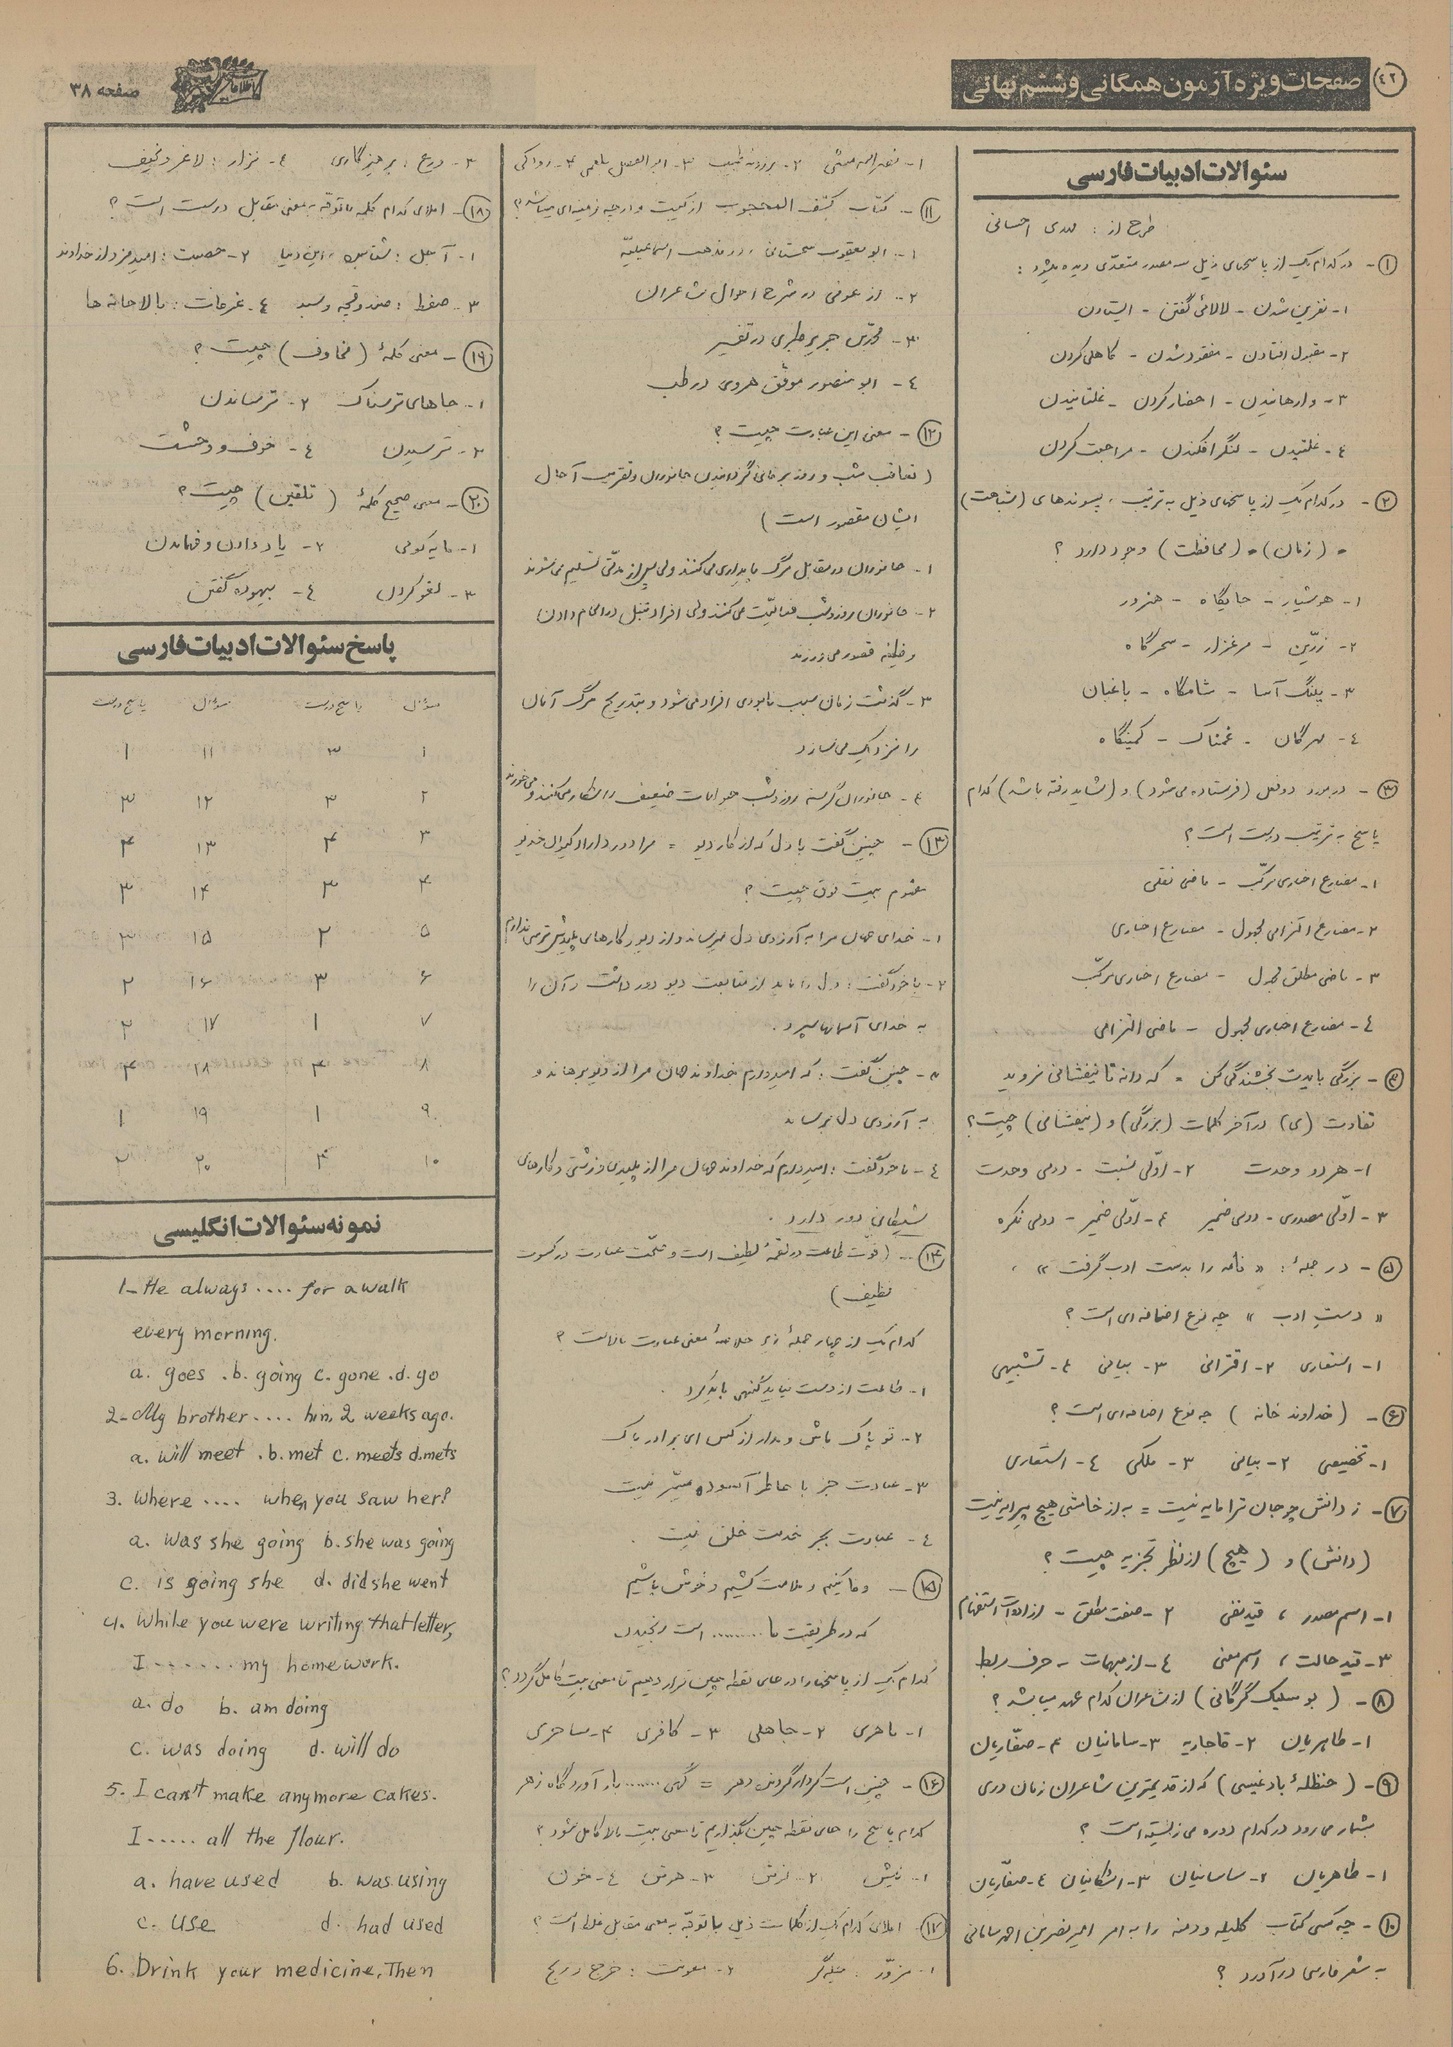 ۴۲ صفحات ویژه آزمون همگانی و ششم نهائی
صفحه ۳۸
سئوالات ادبیات فارسی
طرح از : مهدی احسانی
۱- در کدام یک از پاسخهای ذیل سه مصدر متعدّی دیده میشود :
۱- نفرین شدن - لالائی گفتن - ایستادن
۲- مقبول افتادن - مفقود شدن - کاهلی کردن
۳- وارهانیدن - احضار کردن - غلتانیدن
۴- غلتیدن - لنگر افکندن - مراجعت کردن
۲- در کدام یک از پاسخهای ذیل به ترتیب ، پسوندهای (شباهت)
و (زمان) و (محافظت) وجود دارد ؟
۱- هوشیار - جایگاه - هنرور
۲- زرّین - مرغزار - سحرگاه
۳- پلنگ آسا - شامگاه - باغبان
۴- مهرگان - غمناک - کمینگاه
۳- در مورد دو فعل (فرستاده می‌شود) و (شاید رفته باشد) کدام
پاسخ به ترتیب درست است ؟
۱- مضارع اخباری مرکّب - ماضی نقلی
۲- مضارع التزامی مجهول - مضارع اخباری
۳- ماضی مطلق مجهول - مضارع اخباری مرکّب
۴- مضارع اخباری مجهول - ماضی التزامی
۴- بزرگی بایدت بخشندگی کن = که دانه تا نیفشانی نروید
تفاوت (ی) در آخر کلمات (بزرگی) و (نیفشانی) چیست ؟
۱- هر دو وحدت ۲- اوّلی نسبت - دومی وحدت
۳- اوّلی مصدری - دومی ضمیر ۴- اوّلی ضمیر - دومی نکره
۵- در جملهٔ : « نامه را بدست ادب گرفت » ،
« دستِ ادب » چه نوع اضافه ای است ؟
۱- استعاری ۲- اقترانی ۳- بیانی ۴- تشبیهی
۶- (خداوند خانه) چه نوع اضافه ای است ؟
۱- تخصیصی ۲- بیانی ۳- ملکی ۴- استعاری
۷- ز دانش چو جان ترا مایه نیست = به از خامشی هیچ پیرایه نیست
(دانش) و (هیچ) از نظر تجزیه چیست ؟
۱- اسم مصدر ، قید نفی ۲- صفت مطلق - از ادات استفهام
۳- قید حالت ، اسم معنی ۴- از مبهمات - حرف ربط
۸- (بوسلیک گرگانی) از شاعران کدام عهد میباشد ؟
۱- طاهریان ۲- قاجاریه ۳- سامانیان ۴- صفّاریان
۹- (حنظلهٔ بادغیسی) که از قدیمترین شاعران زبان دری
بشمار می رود در کدام دوره می زیسته است ؟
۱- طاهریان ۲- ساسانیان ۳- اشکانیان ۴- صفّاریان
۱۰- چه کسی کتاب کلیله و دمنه را به امر امیر نصر بن احمد سامانی
به شعر فارسی در آورد ؟
۱- نصراله منشی ۲- برزویه طبیب ۳- ابوالفضل بلعمی ۴- رودکی
۱۱- کتاب کشف المحجوب از کیست و در چه زمینه‌ای میباشد ؟
۱- ابو یعقوب سجستانی ، در مذهب اسماعیلیّه
۲- از عوفی در شرح احوال شاعران
۳- محمّدبن جریر طبری در تفسیر
۴- ابو منصور موفّق هروی در طب
۱۲- معنی این عبارت چیست ؟
(تعاقب شب و روز بر فانی گردانیدن جانوران و تقریب آجال
ایشان مقصور است)
۱- جانوران در مقابل مرگ پایداری می کنند ولی پس از مدّتی تسلیم می شوند
۲- جانوران روز و شب فعالیّت می کنند ولی افراد تنبل در انجام دادن
وظیفه قصور می ورزند
۳- گذشت زمان سبب نابودی افراد می شود و بتدریج مرگ آنان
را نزدیک می سازد
۴- جانوران گرسنه روز و شب حیوانات ضعیف را شکار می کنند و می خورند
۱۳- چنین گفت با دل که از کار دیو = مرا دور داراد گیهان خدیو
مفهوم بیت فوق چیست ؟
۱- خدای جهان مرا به آرزوی دل میرساند و از دیو و کارهای پلیدش ترسی ندارم
۲- با خود گفت : دل را باید از متابعت دیو دور داشت و آن را
به خدای آسمانها سپرد .
۳- چنین گفت : که امیدوارم خداوند جهان مرا از دیو برهاند و
به آرزوی دل برساند
۴- با خود گفت : امیدوارم که خداوند جهان مرا از پلیدی و زشتی و کارهای
شیطانی دور دارد .
۱۴- (قوّت طاعت در لقمهٔ لطیف است و صحّت عبادت در کسوت
نظیف)
کدام یک از چهار جملهٔ زیر خلاصهٔ معنی عبارت بالاست ؟
۱- طاعت از دست نیاید گنهی باید کرد .
۲- تو پاک باش و مدار از کس ای برادر باک
۳- عبادت جز با خاطر آسوده میسّر نیست
۴- عبادت بجز خدمت خلق نیست .
۱۵- وفا کنیم و ملامت کشیم و خوش باشیم
که در طریقت ما ......... است رنجیدن
کدام یک از پاسخها را در جای نقطه چین قرار دهیم تا معنی بیت کامل گردد ؟
۱- ماهری ۲- جاهلی ۳- کافری ۴- ساحری
۱۶- چنین است کردار گردنده دهر = گهی ....... بار آورد گاه زهر
کدام پاسخ را جای نقطه چین بگذاریم تا معنی بیت بالا کامل شود ؟
۱- نیش ۲- نوش ۳- هوش ۴- خون
۱۷- املای کدام یک از کلمات ذیل با توجّه به معنی مقابل غلط است ؟
۱- مزوّر : حیله‌گر ۲- معونت : خرج و رنج
۳- ورع : پرهیزگاری ۴- نزار : لاغر و نحیف
۱۸- املای کدام کلمه با توجّه به معنی مقابل درست است ؟
۳- صفط : صندوقچه و سبد ۴- غرفات : بالاخانه ها
۱۹- معنی کلمهٔ (مخاوف) چیست ؟
۱- جاهای ترسناک ۲- ترساندن
۳- ترسیدن ۴- خوف و وحشت
۲۰- معنی صحیح کلمهٔ (تلقین) چیست ؟
۱- مایه کوبی ۲- یاد دادن و فهماندن
۳- لغو کردن ۴- بیهوده گفتن
پاسخ سئوالات ادبیات فارسی
سؤال پاسخ درست سؤال پاسخ درست
۱ ۳ ۱۱ ۱
۲ ۳ ۱۲ ۳
۳ ۴ ۱۳ ۴
۴ ۳ ۱۴ ۳
۵ ۲ ۱۵ ۳
۶ ۳ ۱۶ ۲
۷ ۱ ۱۷ ۲
۸ ۴ ۱۸ ۴
۹ ۱ ۱۹ ۱
۱۰ ۴ ۲۰ ۲
نمونه سئوالات انگلیسی
1- He always .... for a walk
every morning.
a. goes . b. going c. gone . d. go
2- My brother .... him, 2 weeks ago.
a. will meet . b. met c. meets d. mets
3. Where .... when you saw her?
a. was she going b. she was going
c. is going she d. did she went
4. While you were writing that letter,
I ....... my homework.
a. do b. am doing
c. was doing d. will do
5. I can't make anymore cakes.
I ..... all the flour.
a. have used b. was using
c. use d. had used
6. Drink your medicine, Then